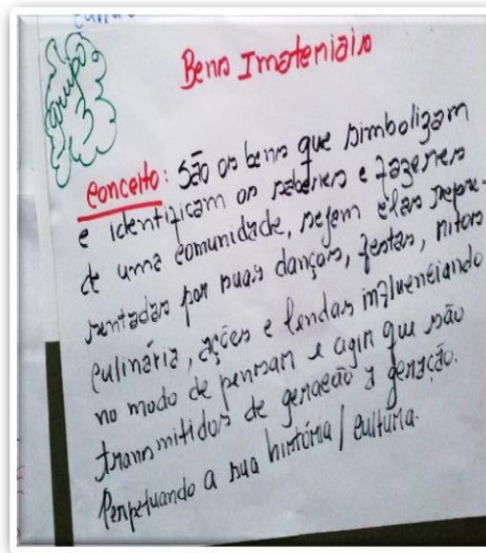 Grupo 3
Bens Imateriais
Conceito: São os bens que simbolizam
e identificam os saberes e fazeres
de uma comunidade, sejam elas repre-
sentadas por suas danças, festas, ritos
culinária, ações e lendas influenciando
no modo de pensar e agir que são
transmitidos de geração a geração.
Perpetuando a sua história / cultura.